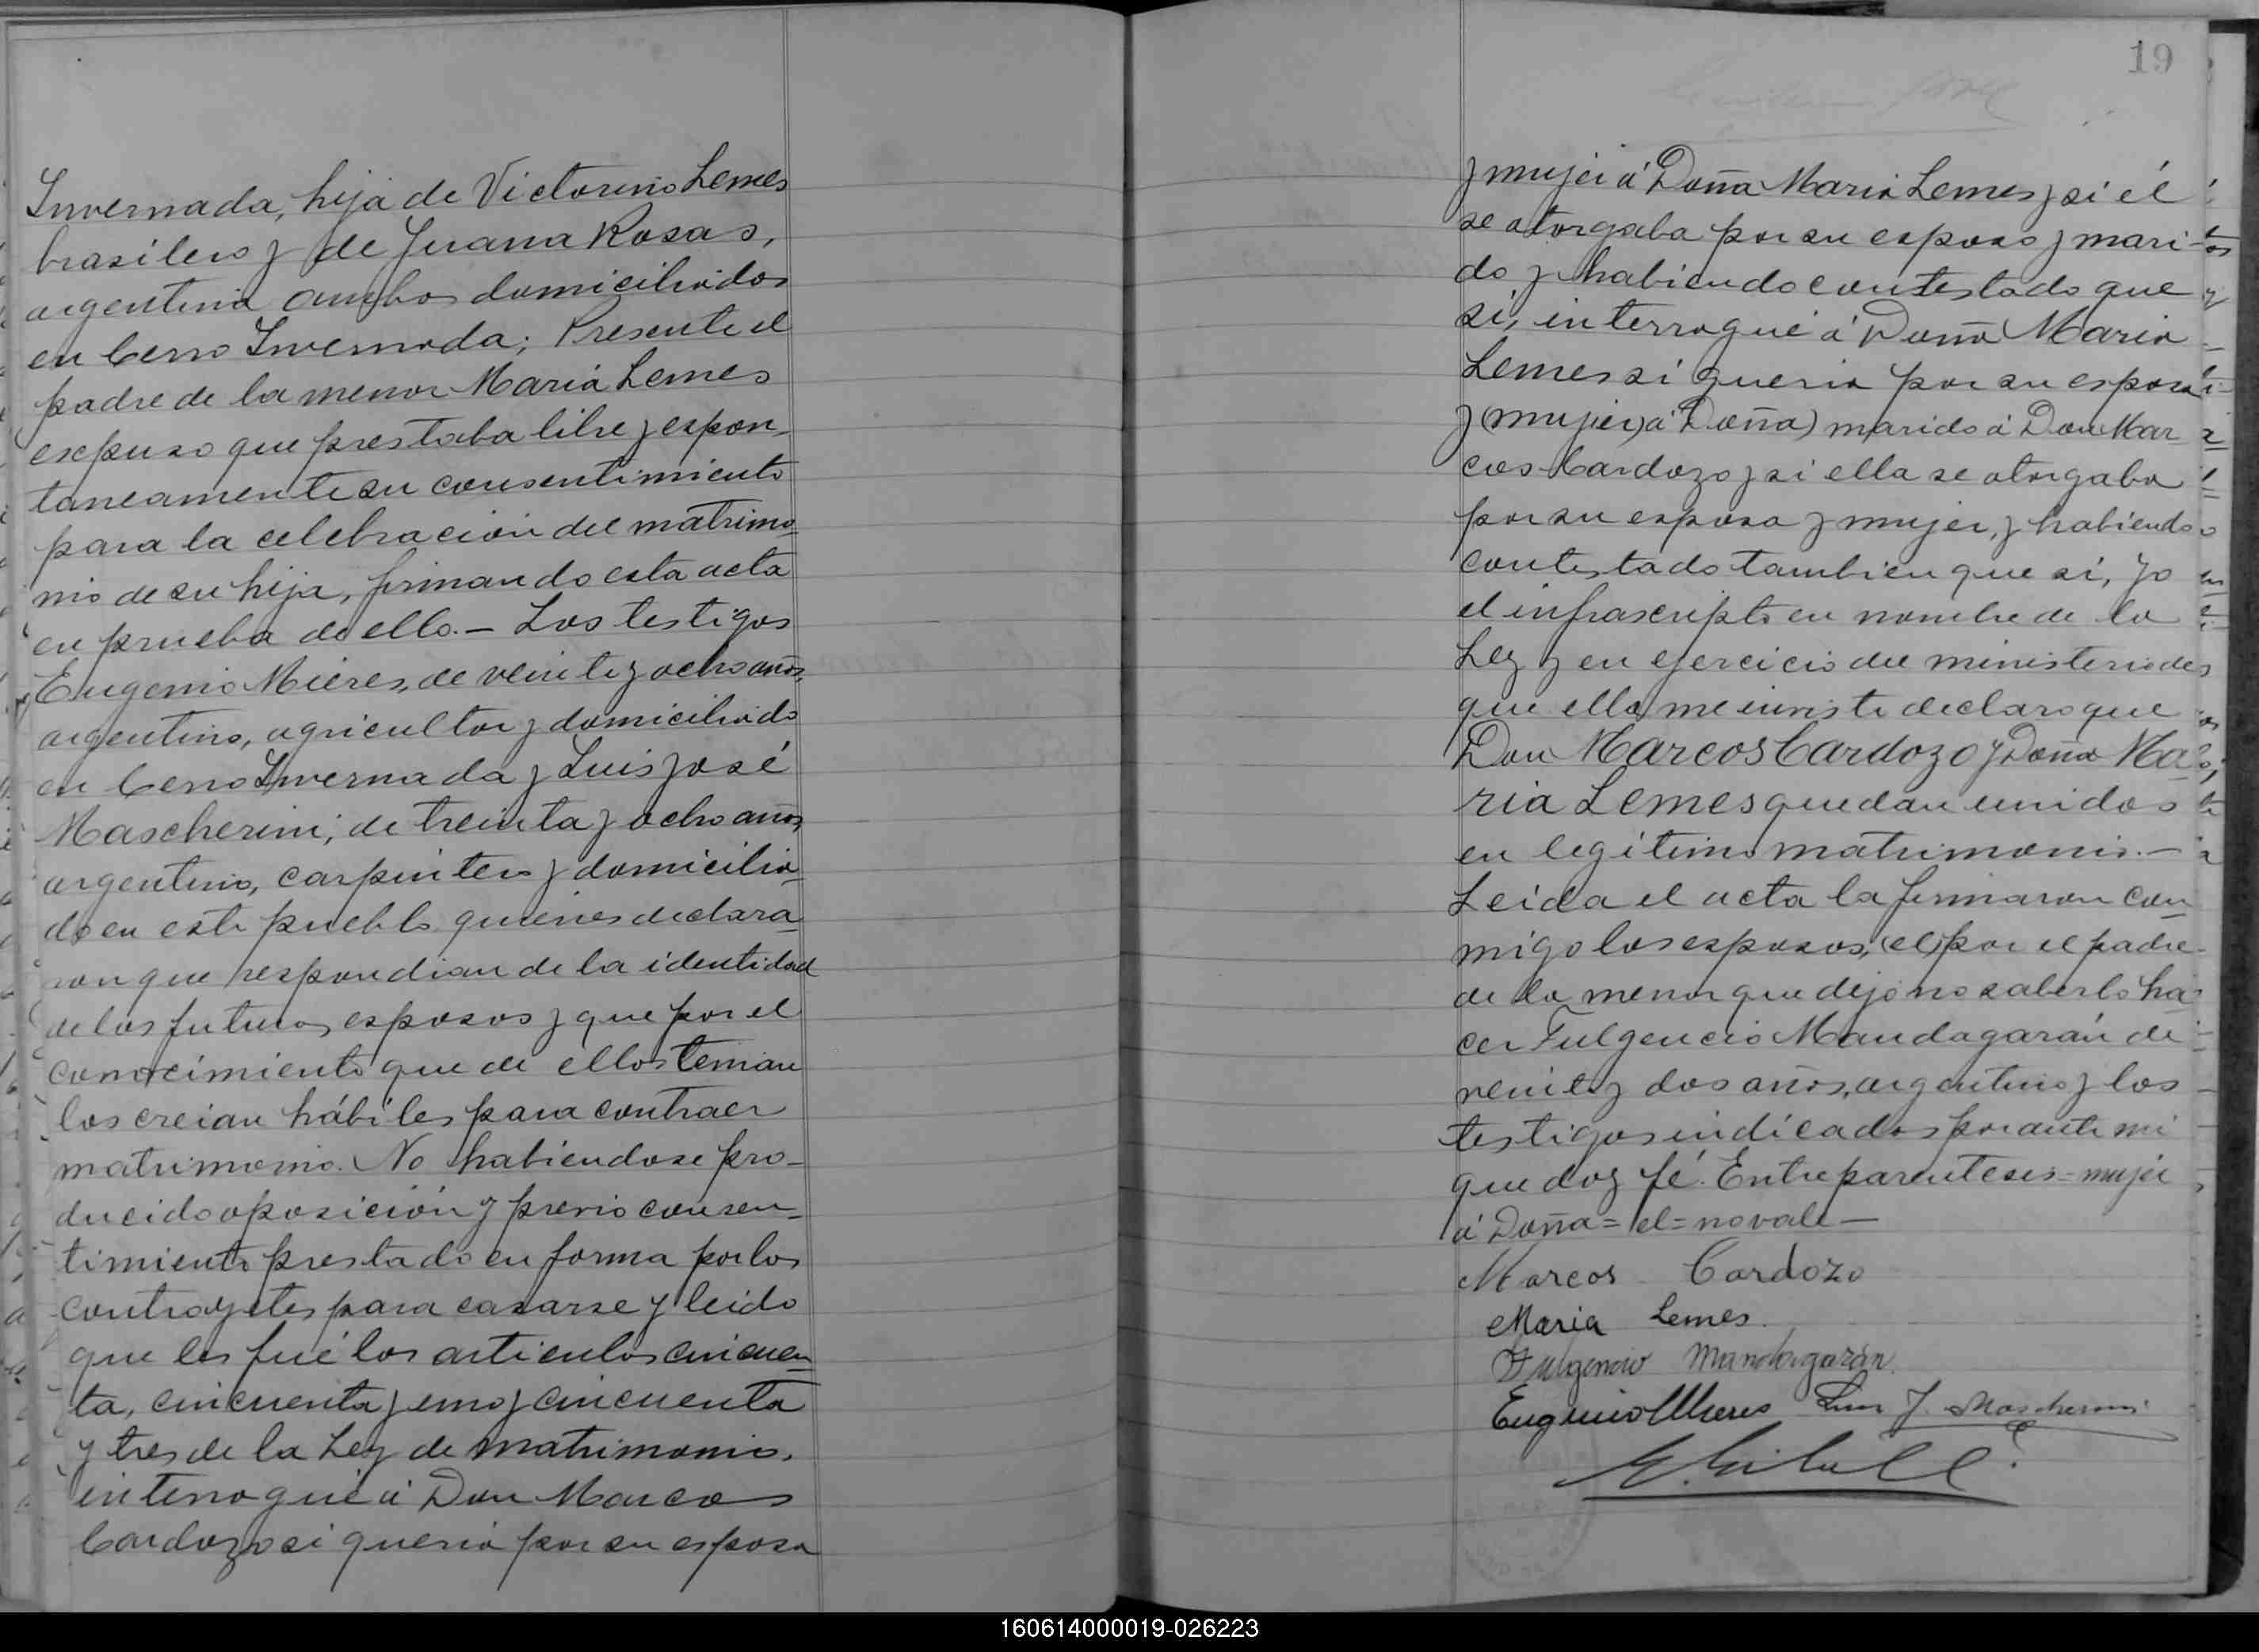 Invernada, hija de Victorino Lemes
brasilero y de Juana Rosas,
argentina ambos domiciliados
en Cerro Invernada; Presente el
padre de la menor María Lemes
expuso que prestaba libre y espon-
taneamente su consentimiento
para la celebración del matrimo-
nio de su hija, firmando esta acta
en prueba de ello.- Los testigos
Eugenio Mieres, de veinte y ocho años,
argentino, agricultor y domiciliado
en Cerro Invernada y Luis José
Mascherini, de treinta y ocho años,
argentino, carpintero y domicilia-
do en este pueblo quienes declara-
ron que respondian de la identidad
de los futuros esposos y que por el
conocimiento que de ellos tenian
los creian hábiles para contraer
matrimonio. No habiendose pro-
ducido oposición y previo consen-
timiento prestado en forma por los
contrayetes para casarse y leido
que les fué los articulos cincuen-
ta, cincuenta y uno y cincuenta
y tres de la Ley de matrimonio,
interrogué á Don Marcos
Cardozo si queria por su esposa
19
y mujer á Doña María Lemes y si él
se otorgaba por su esposo y mari-
do y habiendo contestado que
sí, interrogué á Doña Maria
Lemes si queria por su esposo
y (mujer á Doña) marido á Don Mar
cos Cardozo y si ella se otorgaba
por su esposa y mujer, y habiendo
contestado tambien que sí, yo
el infrascripto en nombre de la
Ley y en ejercicio del ministerio de
que ella me inviste declaro que
Don Marcos Cardozo y Doña Ma-
ria Lemes quedan unidos
en legítimo matrimonio.-
Leida el acta la firmaron con-
migo los esposos, (el) por el padre
de la menor que dijo no saberlo ha-
cer Fulgencio Mandagarán de
veinte y dos años, argentino y los
testigos indicados por ante mi
que doy fé. Entre parenteses = mujer
á Doña = el = no vale —
Marcos Cardozo
Maria Lemes.
Fulgencio Mandagarán.
Eugenio Mieres Luis J. Mascherini
160614000019-026223